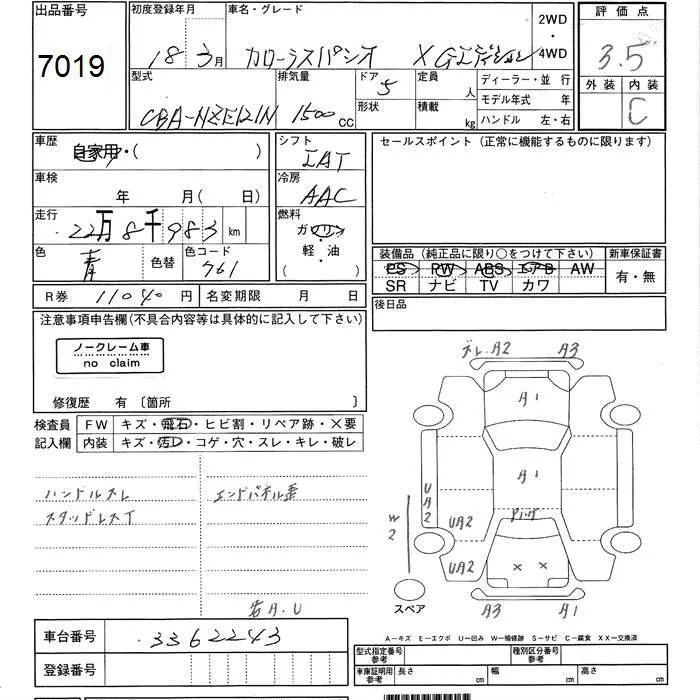 出品番号 初度登録年月 車名・グレード 2WD・4WD 評価点
7019 18 3月 カローラスパシオ X Gエディション 3.5
外装 内装
C
型式 排気量 ドア 定員 人 ディーラー・並行
CBA-NZE121N 1500cc 5 形状 積載 kg モデル年式 年
ハンドル 左・右
車歴 自家用・( ) シフト IAT セールスポイント(正常に機能するものに限ります)
車検 年 月(日) 冷房 AAC
走行 22万8千983km 燃料 ガソリン
軽・油
( )
色 青 色替 色コード 761
装備品(純正品に限り○をつけて下さい) 新車保証書
PS PW ABS エアB AW 有・無
SR ナビ TV カワ
R券 11040円 名変期限 月 日 後日品
注意事項申告欄(不具合内容等は具体的に記入して下さい)
ノークレーム車
no claim
修復歴 有〔箇所 〕
検査員 FW キズ・飛石・ヒビ割・リペア跡・×要
記入欄 内装 キズ・汚レ・コゲ・穴・スレ・キレ・破レ
ハンドルスレ エンドパネル歪
スタッドレスT
A2 A3
A1
A1
UA2
W2
UA2
UA2
× ×
A3 A1
スペア
A.U
A―キズ E―エクボ U―凹み W―補修跡 S―サビ C―腐食 XX―交換済
車台番号 3362243 型式指定番号 参考 種別区分番号 参考
登録番号 車庫証明用 参考 長さ cm 幅 cm 高さ cm